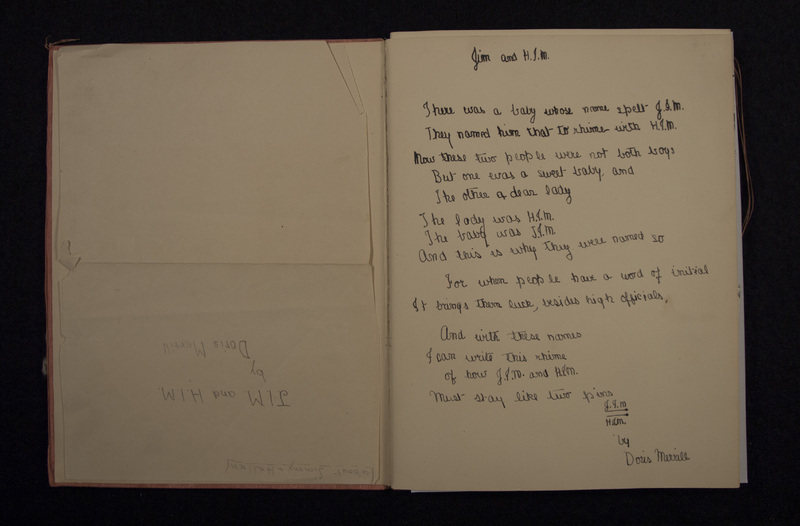 J.I.M and H.I.M
by
Doris Merrill
Jim and H.I.M.
There was a baby whose name spelt J.I.M.
They named him that to rhime with H.I.M.
Now these two people were not both boys
But one was a sweet baby, and
The other a dear lady
The lady was H.I.M.
The baby was J.I.M
And this is why they were named so
For when people have a word of initial
It brings them luck, besides high officials.
And with these names
I can write this rhime
of how J.I.M. and H.I.M.
Must stay like two pins
J.I.M
H.I.M
by
Doris Merrill